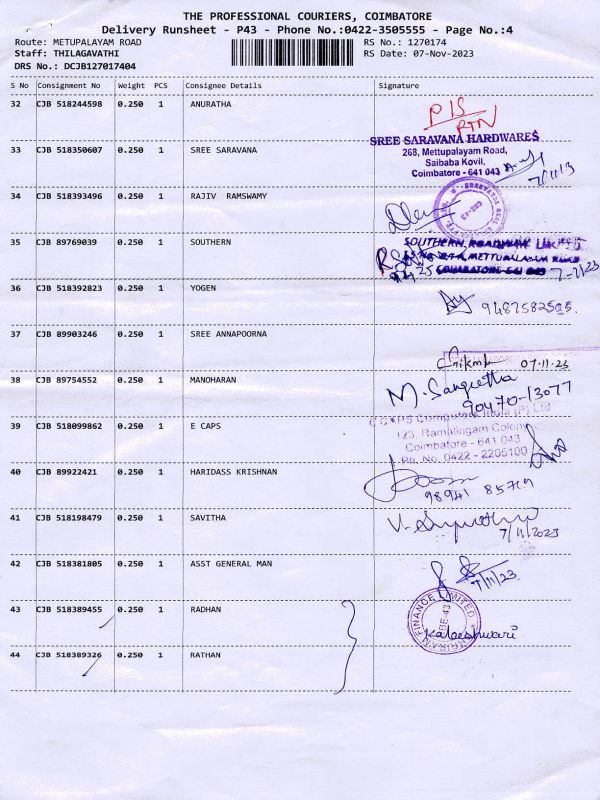 THE PROFESSIONAL COURIERS, COIMBATORE
Delivery Runsheet - P43 - Phone No.:0422-3505555 - Page No.:4
Route: METUPALAYAM ROAD RS No.: 1270174
Staff: THILAGAVATHI RS Date: 07-Nov-2023
DRS No.: DCJB127017404
S No Consignment No Weight PCS Consignee Details Signature
32 CJB 518244598 0.250 1 ANURATHA
P/S
RTN
SREE SARAVANA HARDWARES
33 CJB 518350607 0.250 1 SREE SARAVANA 268, Mettupalayam Road,
Saibaba Kovil,
Coimbatore - 641 043
7/11/23
34 CJB 518393496 0.250 1 RAJIV RAMSWAMY
35 CJB 89769039 0.250 1 SOUTHERN SOUTHERN
36 CJB 518392823 0.250 1 YOGEN
9487582505.
37 CJB 89903246 0.250 1 SREE ANNAPOORNA
07.11.23
38 CJB 89754552 0.250 1 MANOHARAN M. Sangeetha
90470-13077
39 CJB 518099862 0.250 1 E CAPS
123, Ramalingam Colony
Coimbatore - 641 043
Ph. No. 0422 - 2205100
40 CJB 89922421 0.250 1 HARIDASS KRISHNAN
98941 85719
41 CJB 518198479 0.250 1 SAVITHA
7/11/2023
42 CJB 518381805 0.250 1 ASST GENERAL MAN
7/11/23
43 CJB 518389455 0.250 1 RADHAN
FINANCE LIMITED
Kaleeshwari
44 CJB 518389326 0.250 1 RATHAN